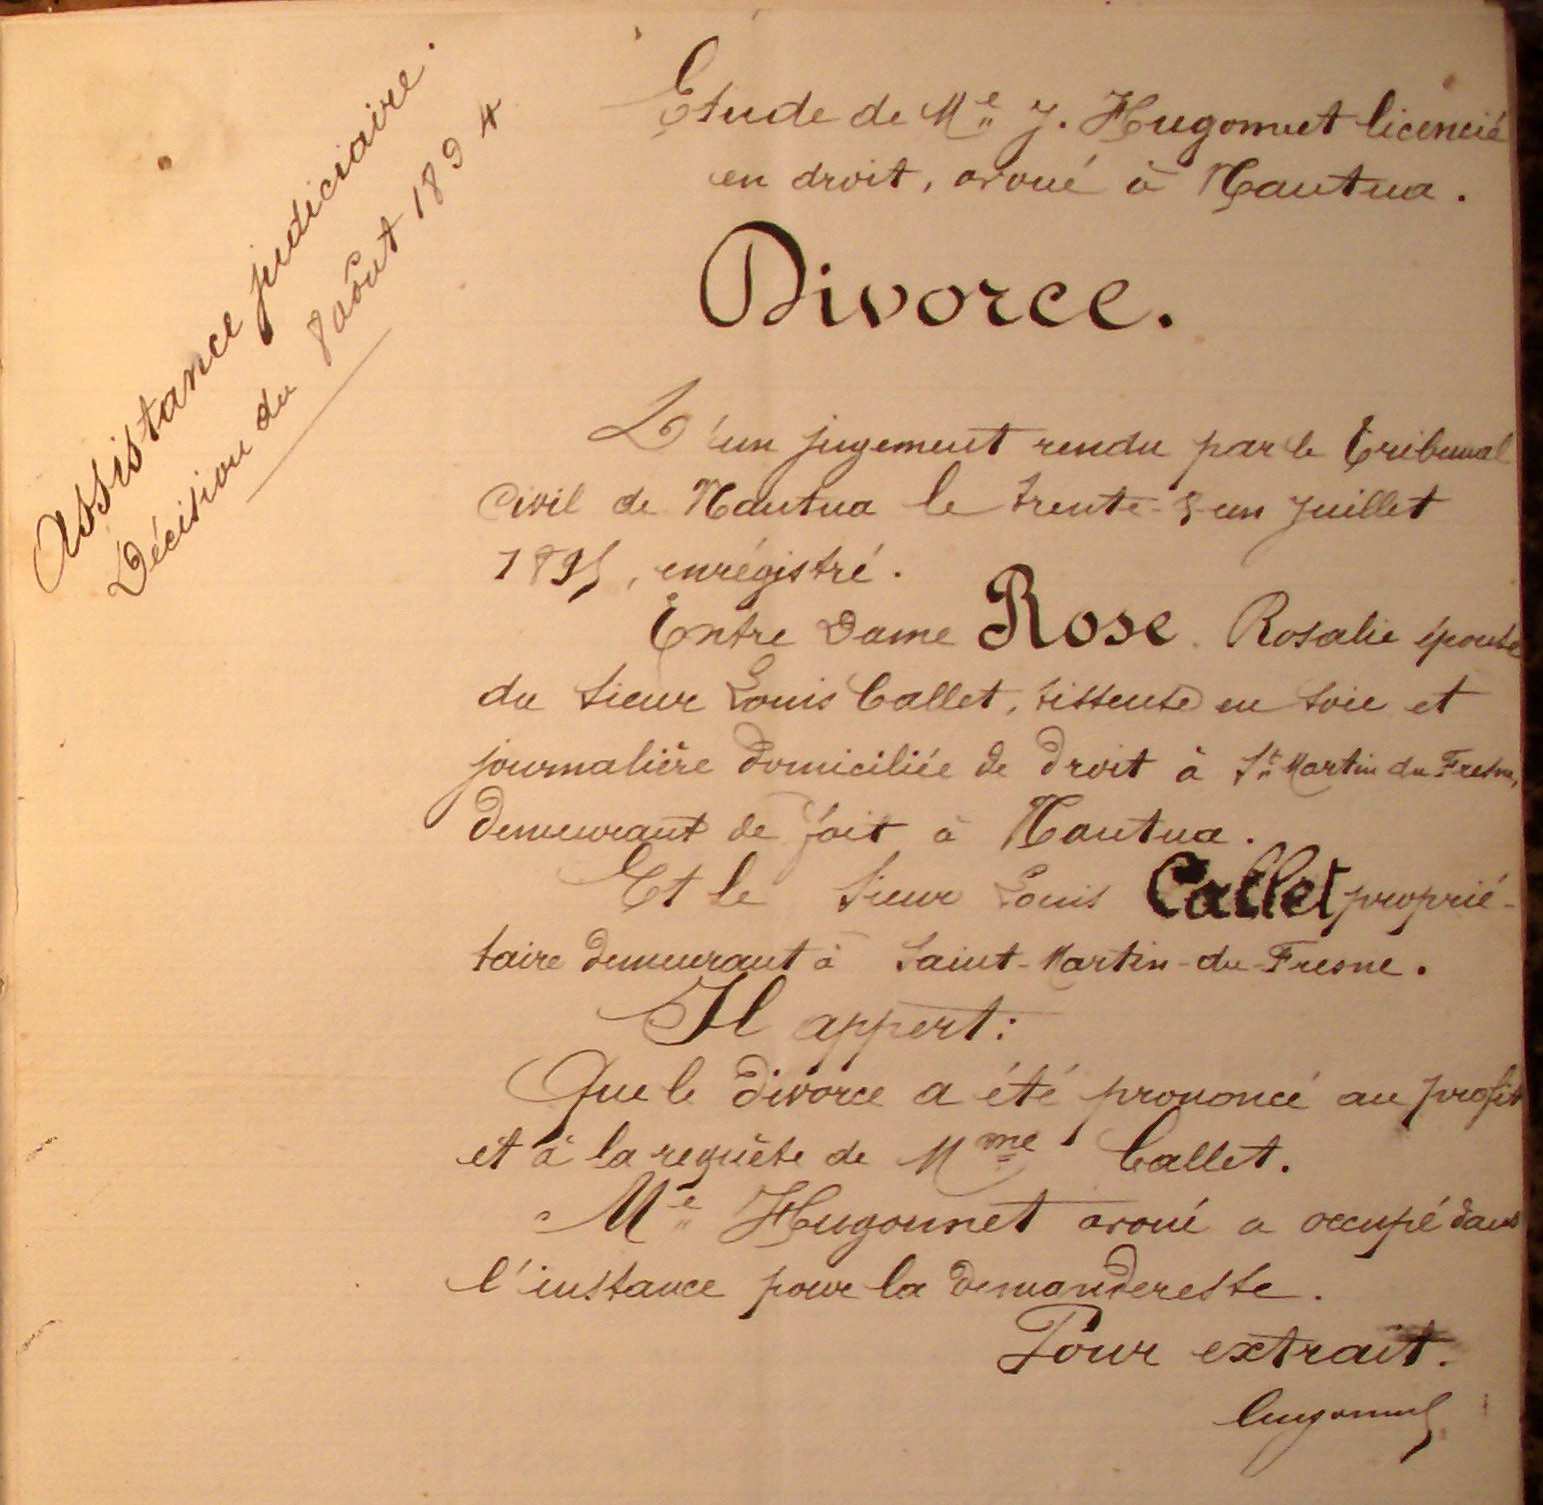 Assistance judiciaire.
Décision du 8 août 1894
Etude de Me J. Hugonnet licencié
en droit, avoué à Nantua.
Divorce.
D'un jugement rendu par le Tribunal
Civil de Nantua le trente-&-un Juillet
1895, enrégistré.
Entre Dame Rose. Rosalie épouse
du sieur Louis Callet, tisseuse en soie et
journalière domiciliée de droit à St Martin du Fresne,
demeurant de fait à Nantua.
Et le sieur Louis Callet proprié-
taire demeurant à Saint-Martin-du-Fresne.
Il appert:
Que le divorce a été prononcé au profit
et à la requête de Mme Callet.
Me Hugonnet avoué a occupé dans
l'instance pour la demanderesse.
Pour extrait.
Hugonnet